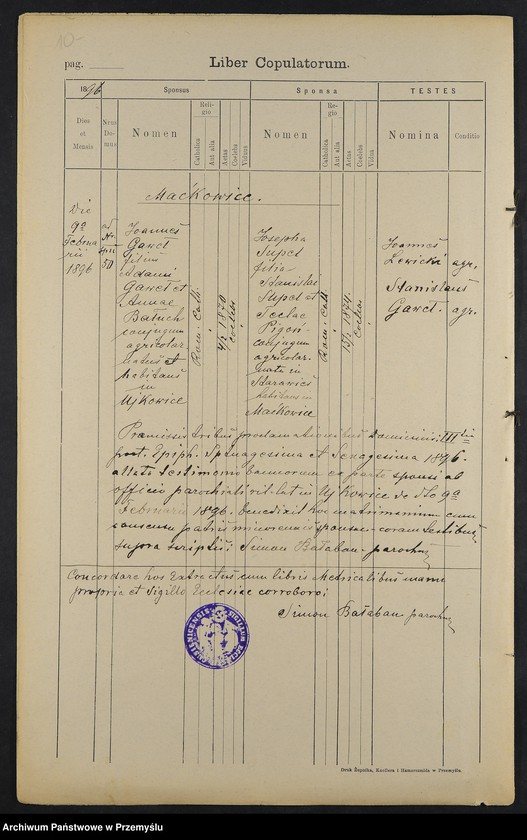 pag.
Liber Copulatorum.
1896
Sponsus
Sponsa
TESTES
Dies et Mensis
Nrus Domus
Nomen
Religio
Catholica
Aut alia
Aetas
Coelebs
Viduus
Nomen
Religio
Catholica
Aut alia
Aetas
Coelebs
Vidua
Nomina
Conditio
Maćkowice.
Die
9a
Februa
rii
1896
ad
Nr.
50
Joannes
Gaweł
filius
Adami
Gaweł et
Annae
Batuch
conjugum
agricolar.
natus et
habitans
in
Ujkowice
Rom. Cath.
4/2 1870
coelebs
Josepha
Supel
filia
Stanislai
Supel et
Teclae
Pigoń
conjugum
agricolar.
nata in
habitans in
Maćkowice
Rom. Cath
15/2 1874.
coelebs
Joannes
Lewicki agr.
Stanislaus
Gaweł. agr.
Praemissis tribus proclamationibus Dominicis: III
post. Epiph. Septuagesima et Sexagesima 1896.
allato testimonio bannorum ex parte sponsi ab
officio parochiali rit. lat in Ujkowice de dto 9a
Februarii 1896. benedixit hoc matrimonium cum
consensu patris minorennis sponsae coram testibus
supra scriptis: Simon Bataban parochus
Concordare hos Extractus cum libris Metricalibus manu
propria et Sigillo Ecclesiae corroboro:
Simon Bataban parochus
Druk Żupnika, Knollera i Hammerszmida w Przemyślu.
Archiwum Państwowe w Przemyślu